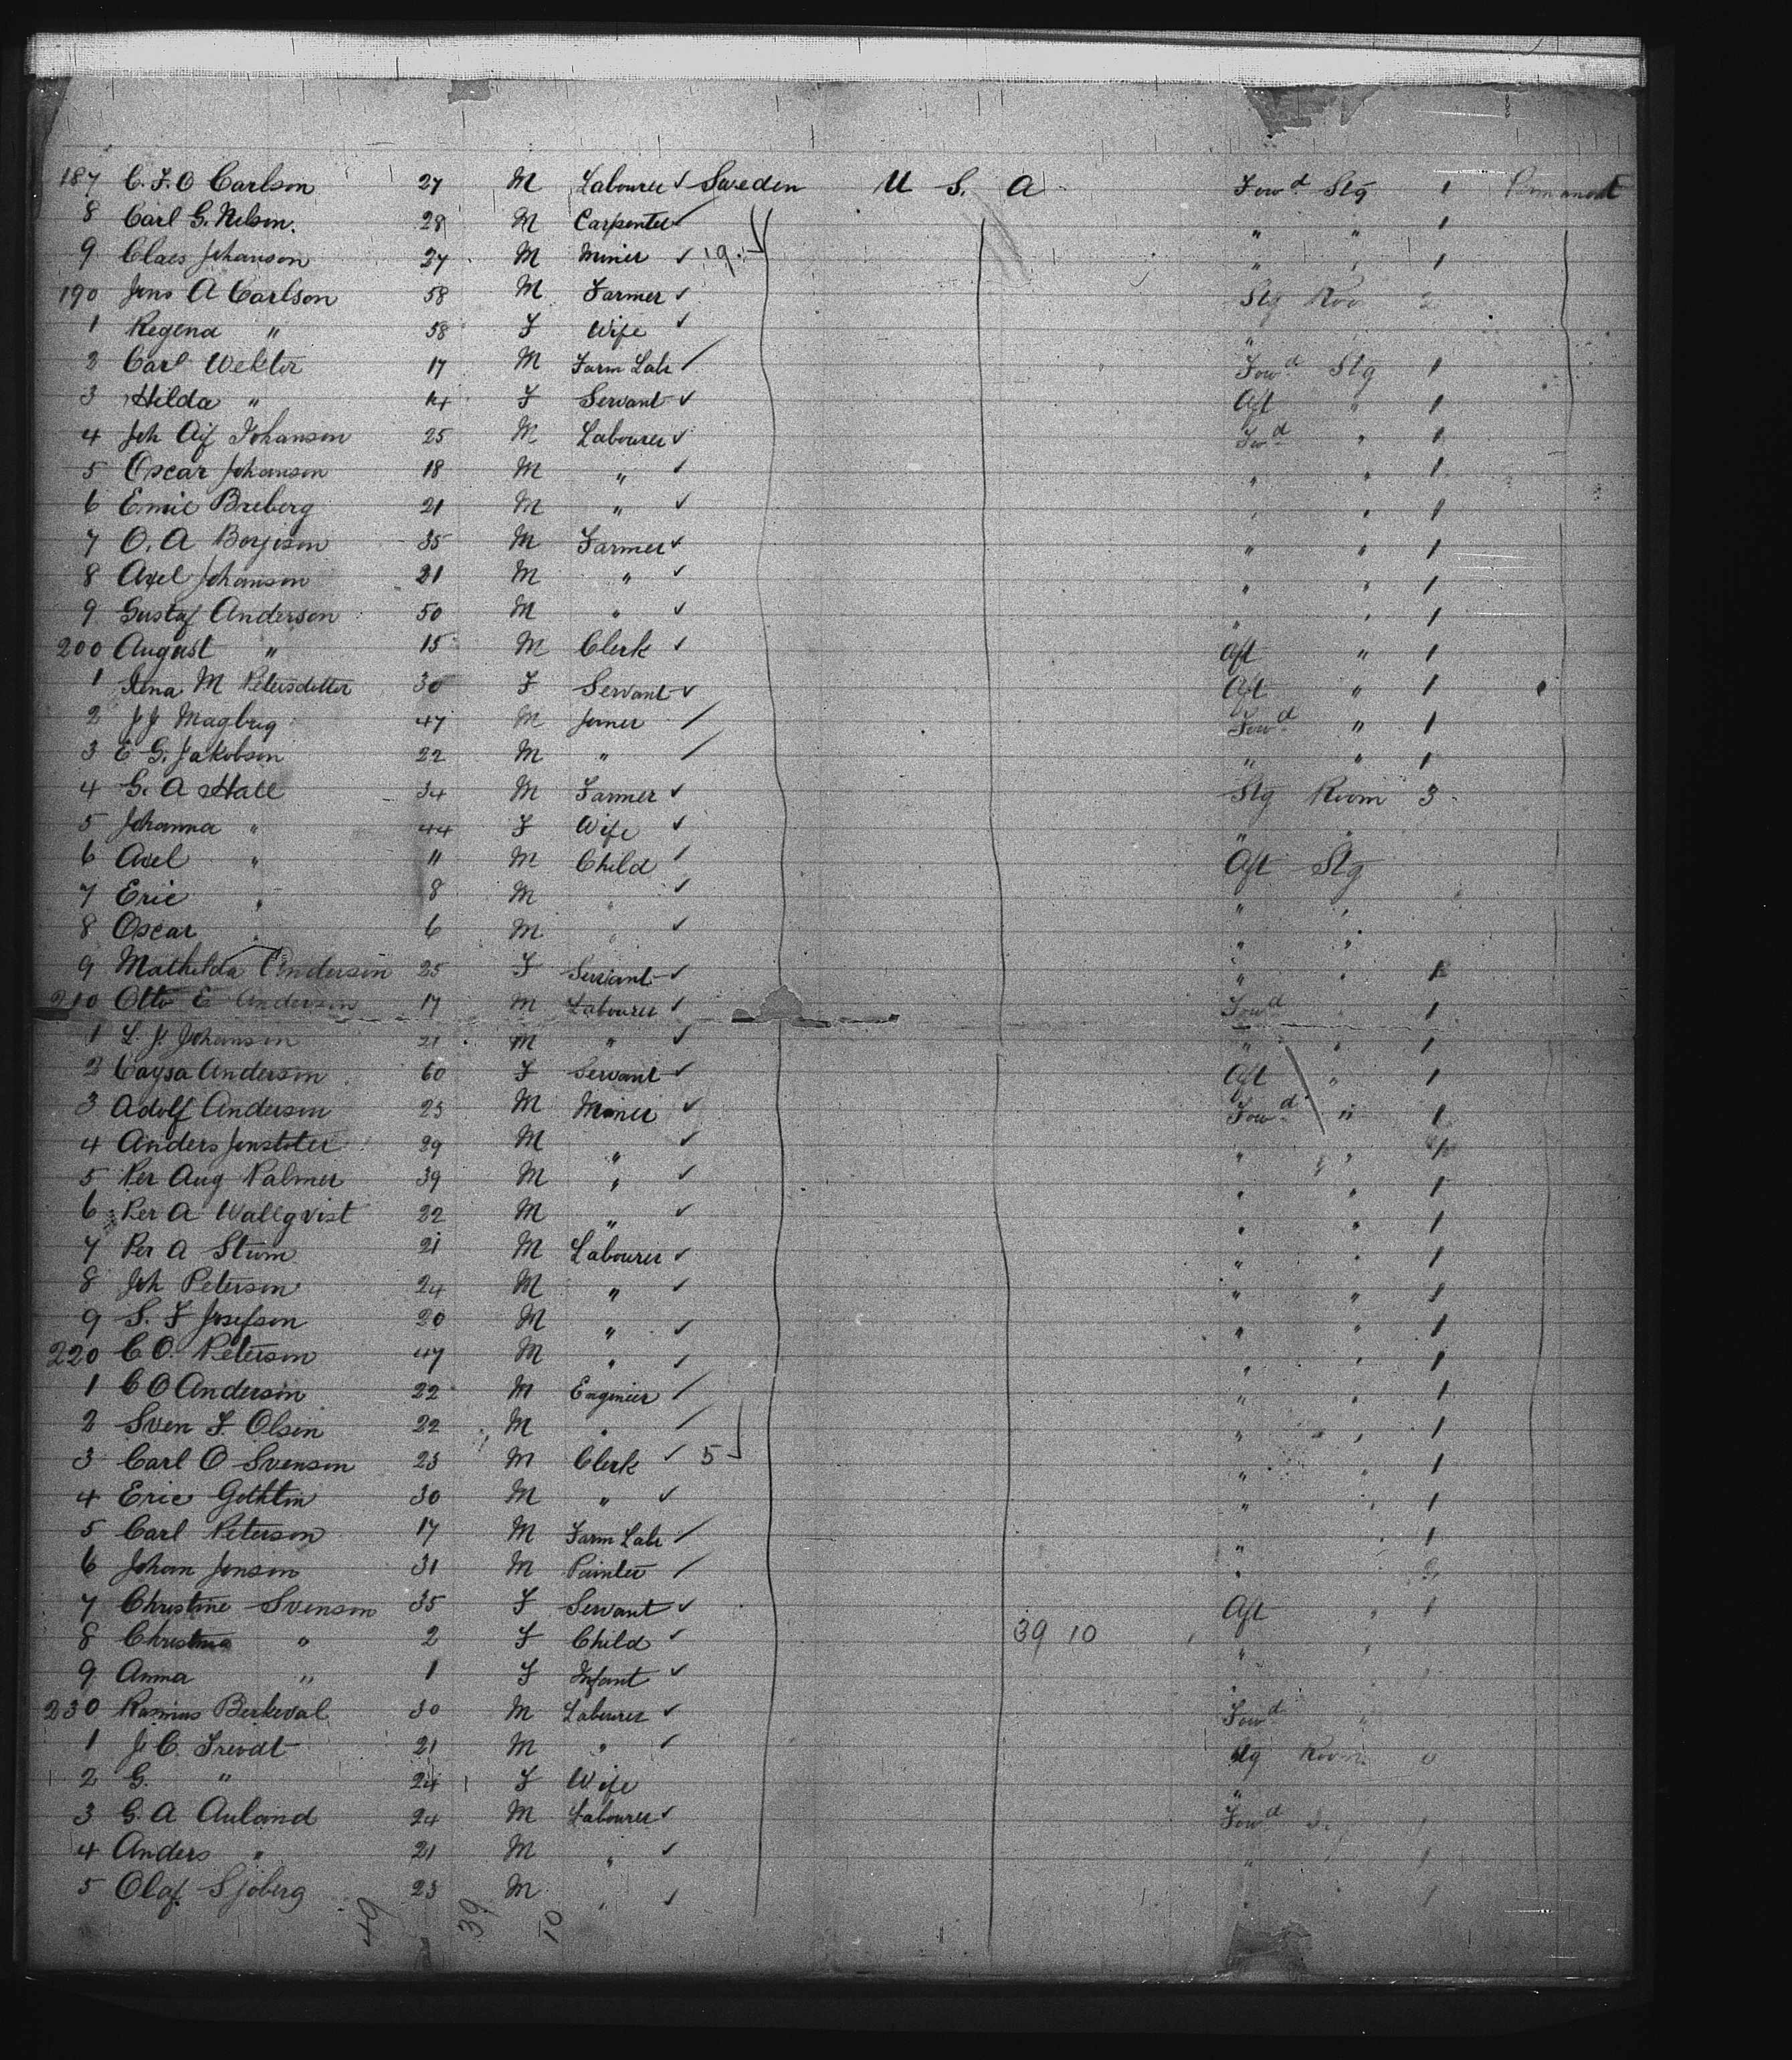 187 C. F. O Carlson 27 M Labourer ✓ Sweden U S. A Fowd Stg 1
8 Carl G. Nelson. 28 M Carpenter ✓ " " 1
9 Claes Johanson 27 M Miner ✓ 19 " " 1
190 Jens A Carlson 58 M Farmer ✓ Stg Roo 2
1 Regena " 58 F Wife ✓ "
2 Carl Wektor 17 M Farm Labr ✓ Fowd Stg 1
3 Hilda " 14 F Servant ✓ Aft " 1
4 Joh Alf Johanson 25 M Labourer ✓ Fwd " 1
5 Oscar Johanson 18 M " ✓ " " 1
6 Emil Breberg 21 M " ✓ " " 1
7 O. A Borjeson 35 M Farmer ✓ " " 1
8 Axel Johanson 21 M " ✓ " " 1
9 Gustaf Anderson 50 M " ✓ " " 1
200 August " 15 M Clerk ✓ Aft " 1
1 M Petersdotter 30 F Servant ✓ Aft " 1
2 J J 47 M Joiner ✓ Fowd " 1
3 E G. Jakobson 22 M " ✓ " " 1
4 G. A Hall 34 M Farmer ✓ Stg Room 3
5 Johanna " 44 F Wife ✓ " "
6 Axel " 11 M Child ✓ Aft Stg
7 Eric " 8 M " ✓ " "
8 Oscar " 6 M " ✓ " "
9 Mathilda Anderson 25 F Servant ✓ " " 1
210 Otto E Anderson 17 M Labourer ✓ Fowd " 1
1 L. J. Johanson 21 M " ✓ " " 1
2 Caysa Anderson 60 F Servant ✓ Aft " 1
3 Adolf Anderson 25 M Miner ✓ Fowd " 1
4 Anders 29 M " ✓ " " 1
5 Per Aug Palmer 39 M " ✓ " " 1
6 Per A Wallqvist 22 M " ✓ " " 1
7 Per A Strom 21 M Labourer ✓ " " 1
8 Joh Peterson 24 M " ✓ " " 1
9 S. F Josefson 20 M " ✓ " " 1
220 C O. Peterson 47 M " ✓ " " 1
1 C O Anderson 22 M Engineer ✓ " " 1
2 Sven F. Olsen 22 M " ✓ " " 1
3 Carl O Svenson 23 M Clerk ✓ 5 " " 1
4 Eric Gothlin 30 M " ✓ " " 1
5 Carl Peterson 17 M Farm Labr ✓ " " 1
6 Johan Jenson 31 M Painter ✓ "
7 Christine Svenson 35 F Servant ✓ Aft " 1
8 Christina " 2 F Child ✓ 39 10 " "
9 Anna " 1 F Infant ✓ "
230 Rasmus Berkeval 30 M Labourer ✓ Fowd "
1 J. C. 21 M " ✓ Stg Room
2 G. " 24 F Wife "
3 G. A Auland 24 M Labourer ✓ Fowd
4 Anders " 21 M " ✓ " " 1
5 Olaf Sjoberg 23 M " ✓ " 1
49 39 10